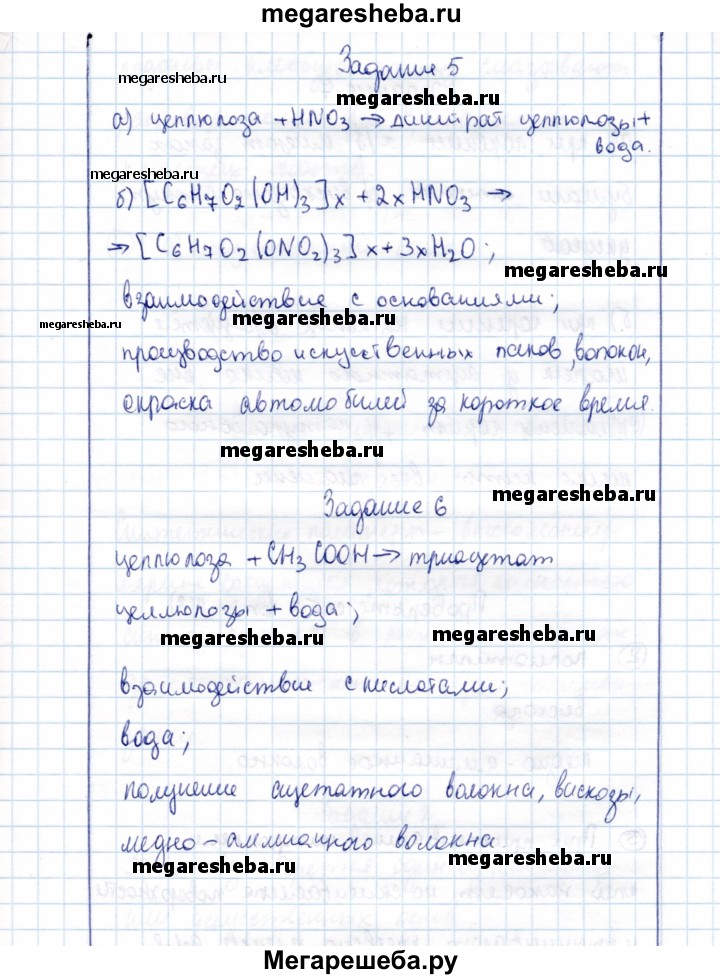 megaresheba.ru
Задание 5
megaresheba.ru
megaresheba.ru
а) целлюлоза + HNO3 → динитрат целлюлозы +
вода.
megaresheba.ru
б) [C6H7O2(OH)3]x + 2xHNO3 →
→ [C6H7O2(ONO2)3]x + 3xH2O;
megaresheba.ru
взаимодействие с основаниями;
megaresheba.ru
megaresheba.ru
производство искуственных палов, волокон,
окраска автомобилей за короткое время.
megaresheba.ru
megaresheba.ru
Задание 6
целлюлоза + CH3COOH → триацетат
целлюлозы + вода;
megaresheba.ru
megaresheba.ru
взаимодействие с кислотами;
вода;
получение ацетатного волокна, вискозы,
медно-аммиачного волокна
megaresheba.ru
megaresheba.ru
megaresheba.ru
megaresheba.ru
Мегарешеба.ру